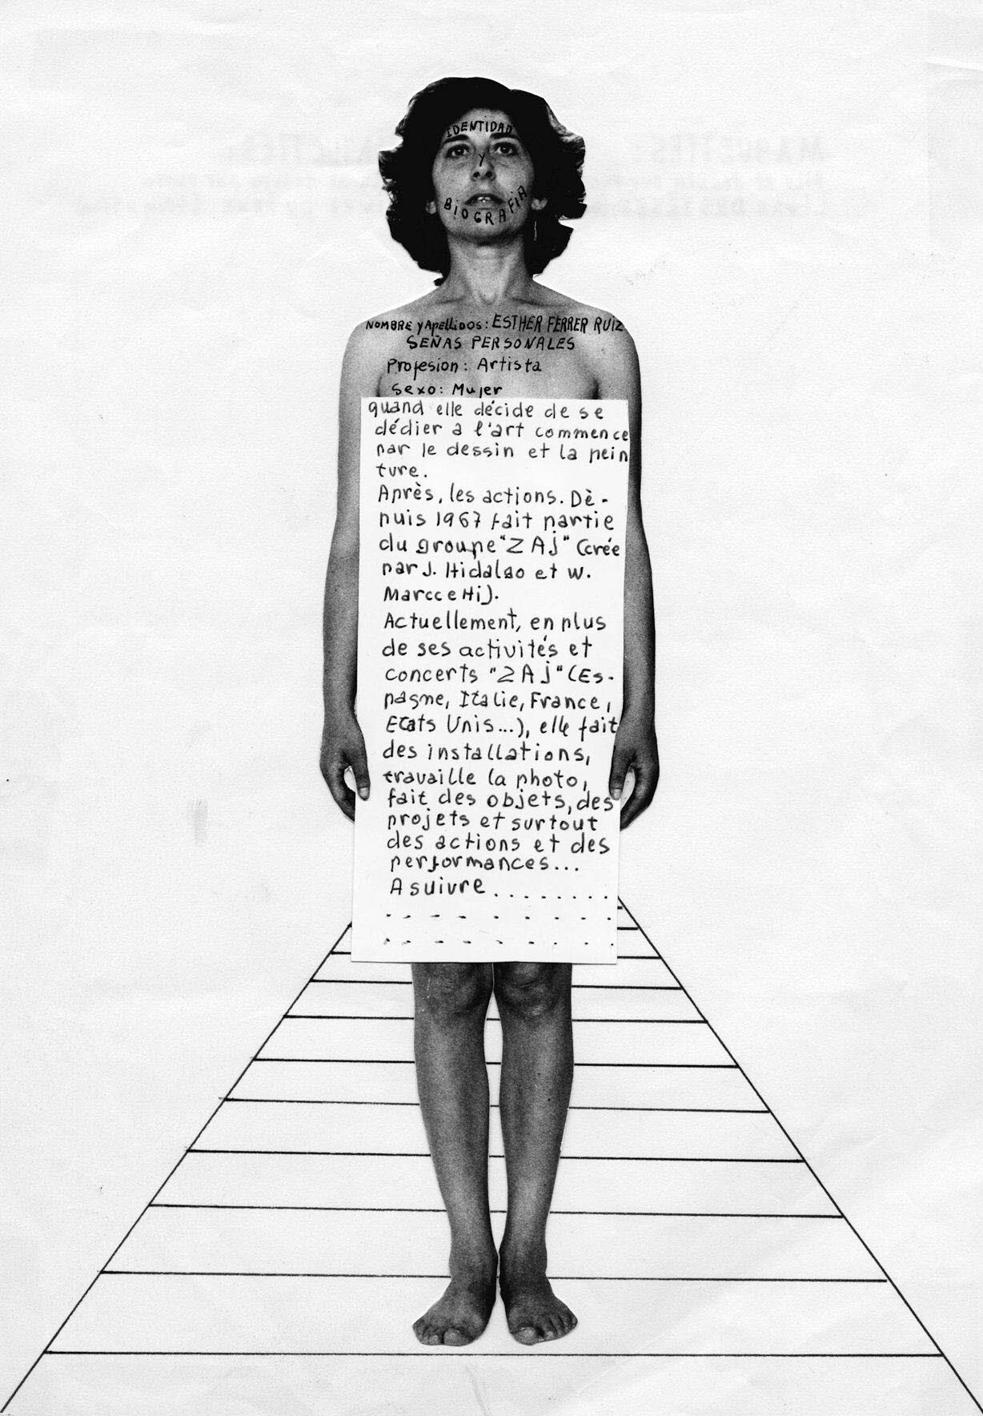 IDENTIDAD
Y
BIOGRAFIA
NOMBRE y Apellidos: ESTHER FERRER RUIZ
SEÑAS PERSONALES
Profesion: Artista
sexo: Mujer
quand elle décide de se
dédier a l'art commence
par le dessin et la pein
ture.
Après, les actions. Dè-
puis 1967 fait partie
du groupe "ZAJ" (crée
par J. Hidalgo et W.
MarcceHi).
Actuellement, en plus
de ses activités et
concerts "ZAJ" (Es-
pagne, Italie, France,
Etats Unis...), elle fait
des installations,
travaille la photo,
fait des objets, des
projets et surtout
des actions et des
performances...
A suivre ........